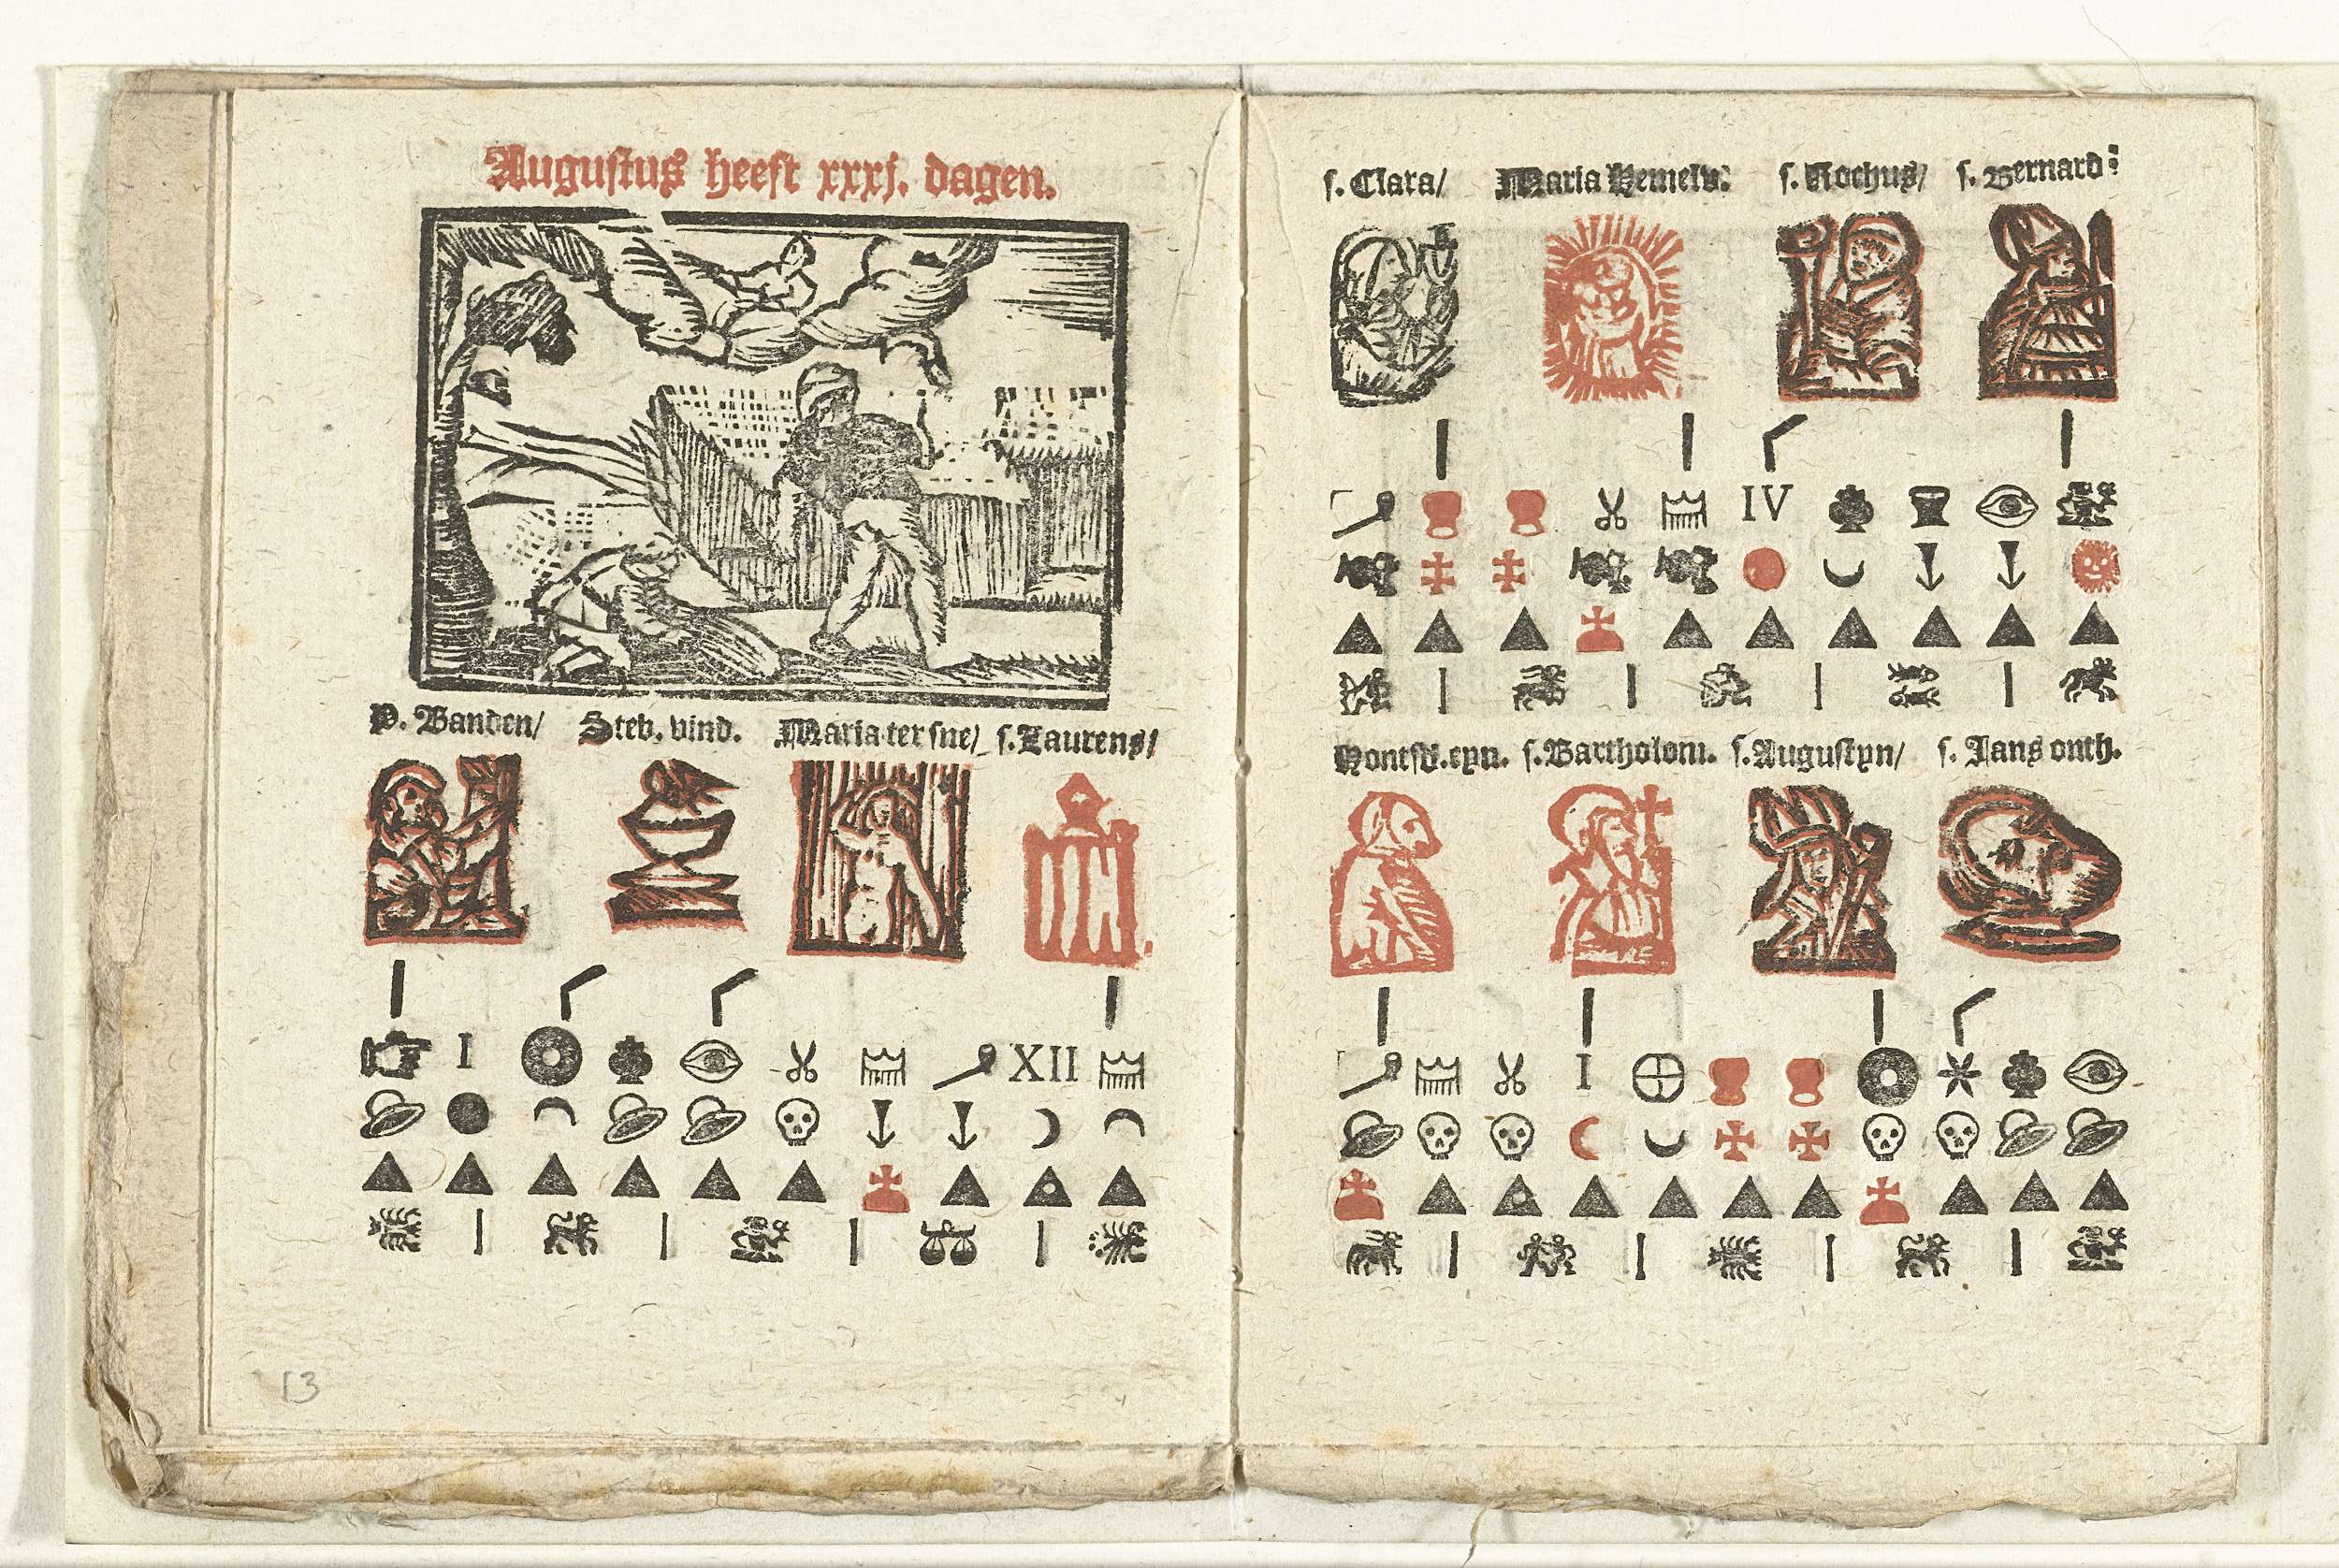 Augustus heeft xxxj. dagen.
P. Banden/ Stev. vind. Maria ter sne/ s. Laurens/
I XII
13
s. Clara/ Maria Hemelv. s. Rochus/ s. Bernard:
IV
Hontsd. eyn. s. Bartholom. s. Augustyn/ s. Jans onth.
I